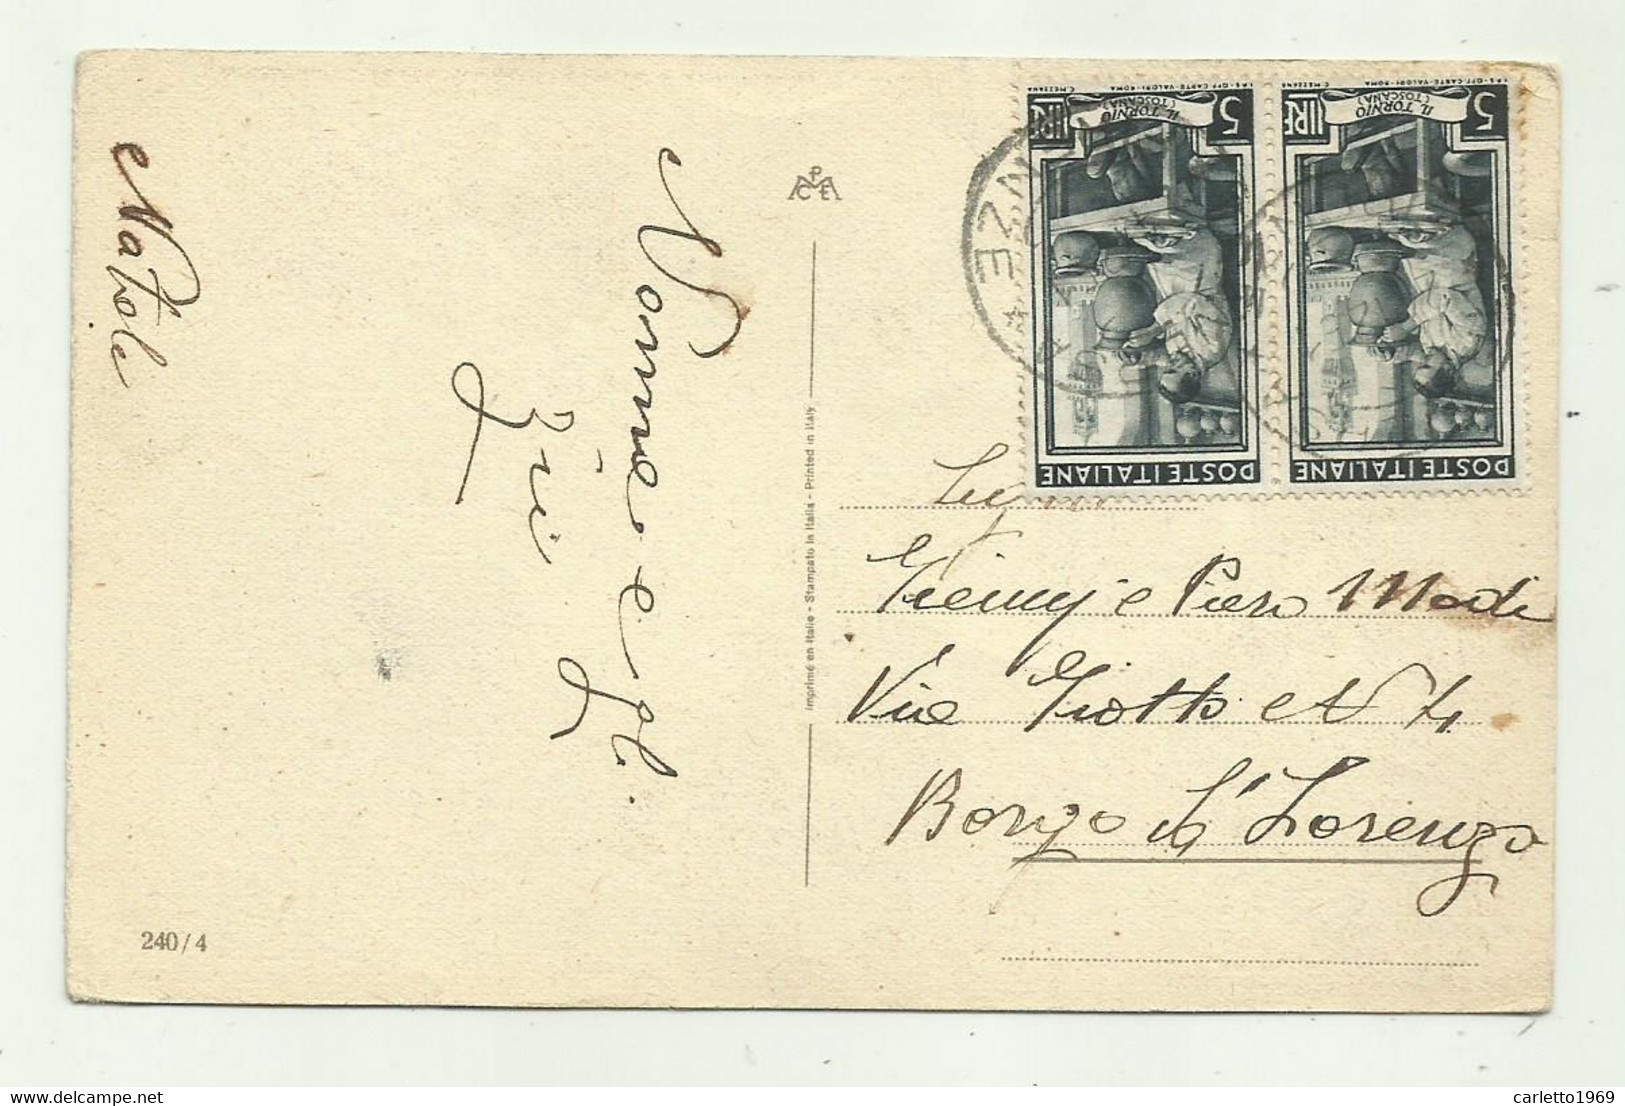 Natale
Nonna e gli
Zii
240/4
C P E
M
Imprimé en Italie - Stampato in Italia - Printed in Italy
POSTE ITALIANE
5 LIRE
IL TORNIO
(TOSCANA)
I.P.S. - OFF. CARTE-VALORI-ROMA
C. MEZZANA
POSTE ITALIANE
5 LIRE
IL TORNIO
(TOSCANA)
I.P.S. - OFF. CARTE-VALORI-ROMA
C. MEZZANA
e Piero Modi
Via Giotto N 4
Borgo S. Lorenzo
carletto1969